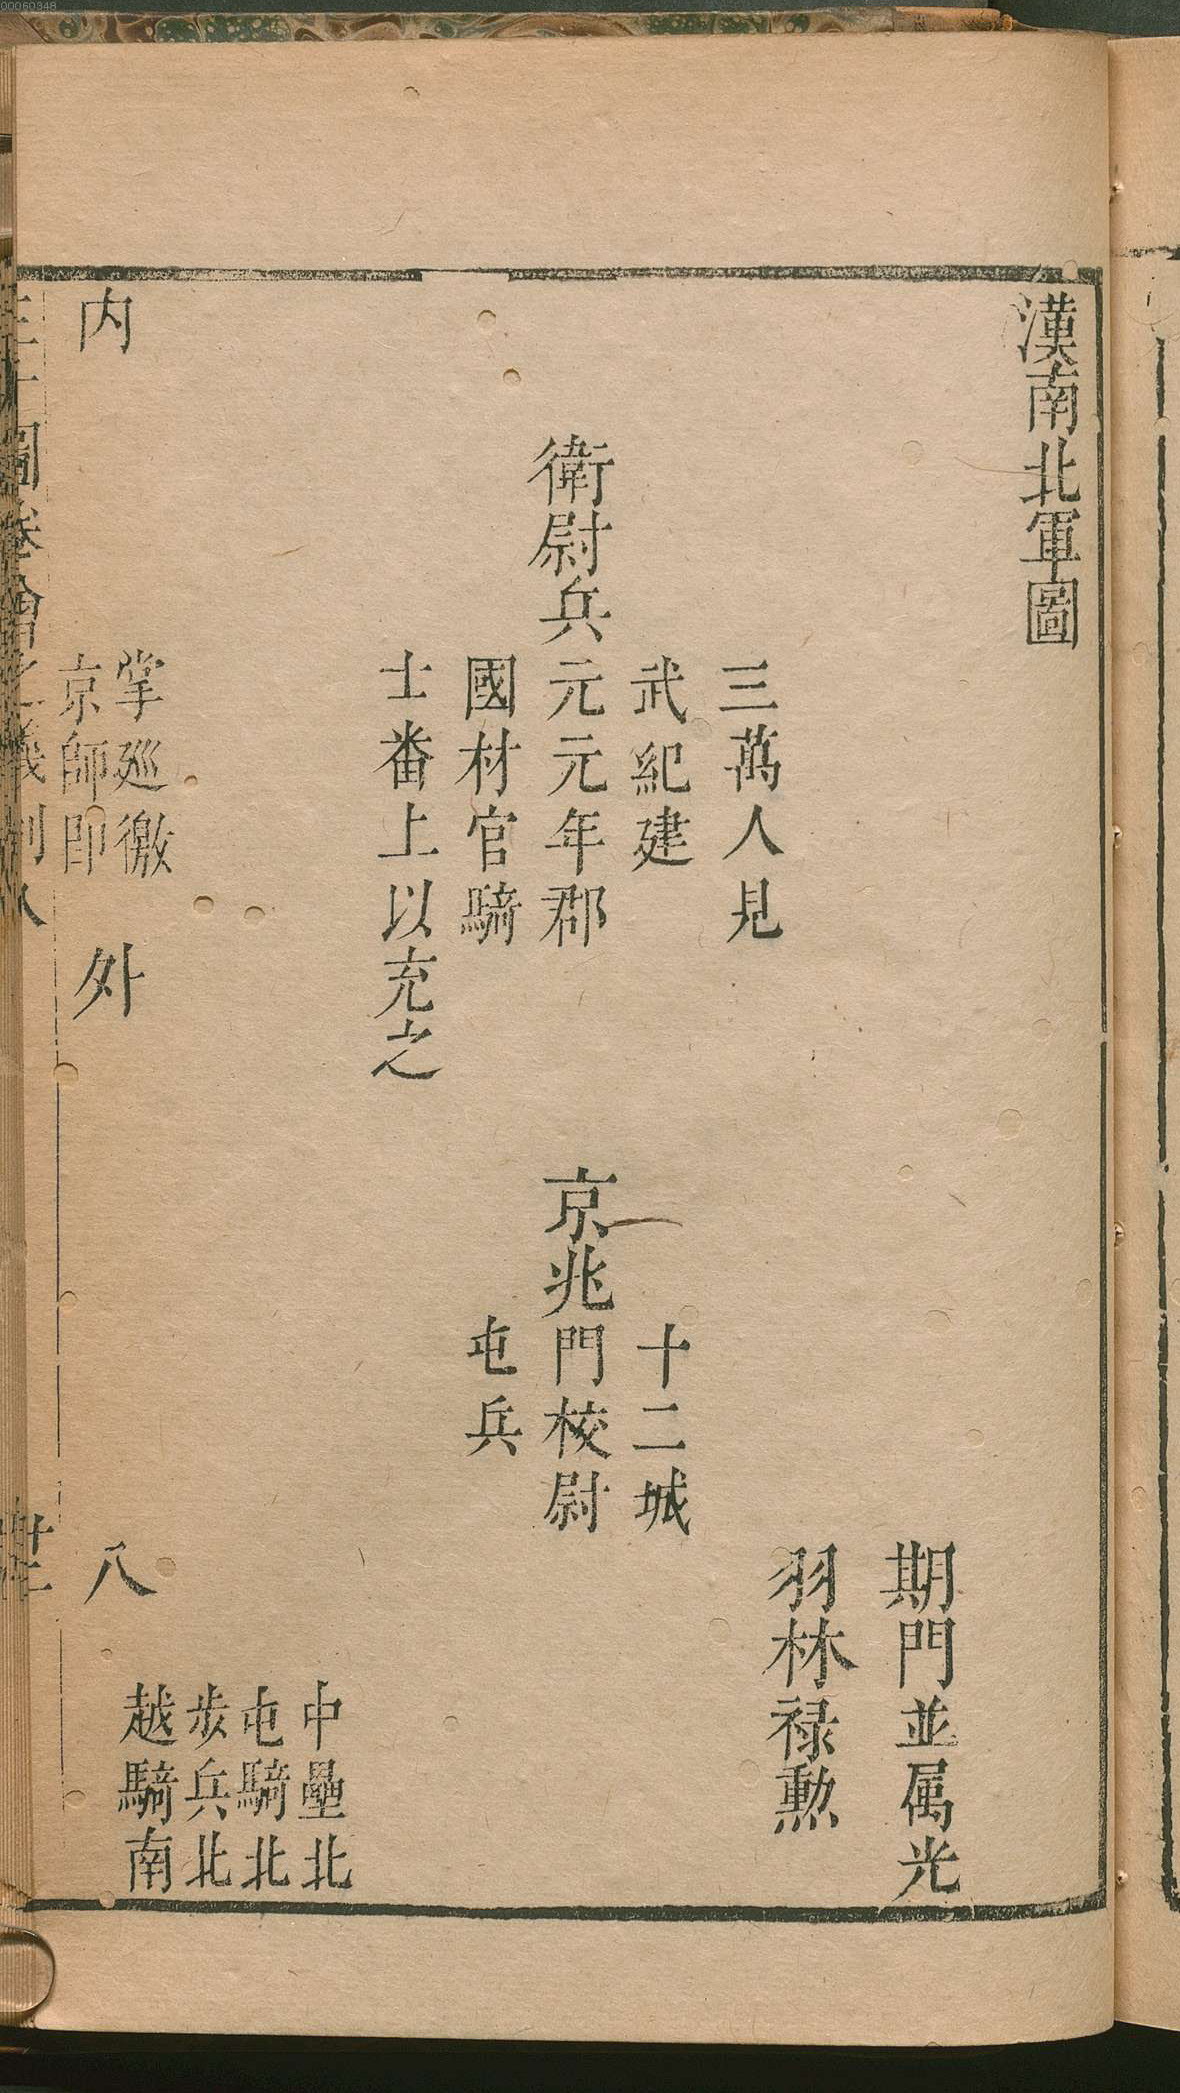 00060348
漢南北軍圖
期門並属光
羽林禄勲
三萬人見
武紀建
衛尉兵元元年郡
國材官騎
士番上以充之
十二城
京兆門校尉
屯兵
中壘北
屯騎北
步兵北
越騎南
内
掌廵徼
京師即
外
八
圖會